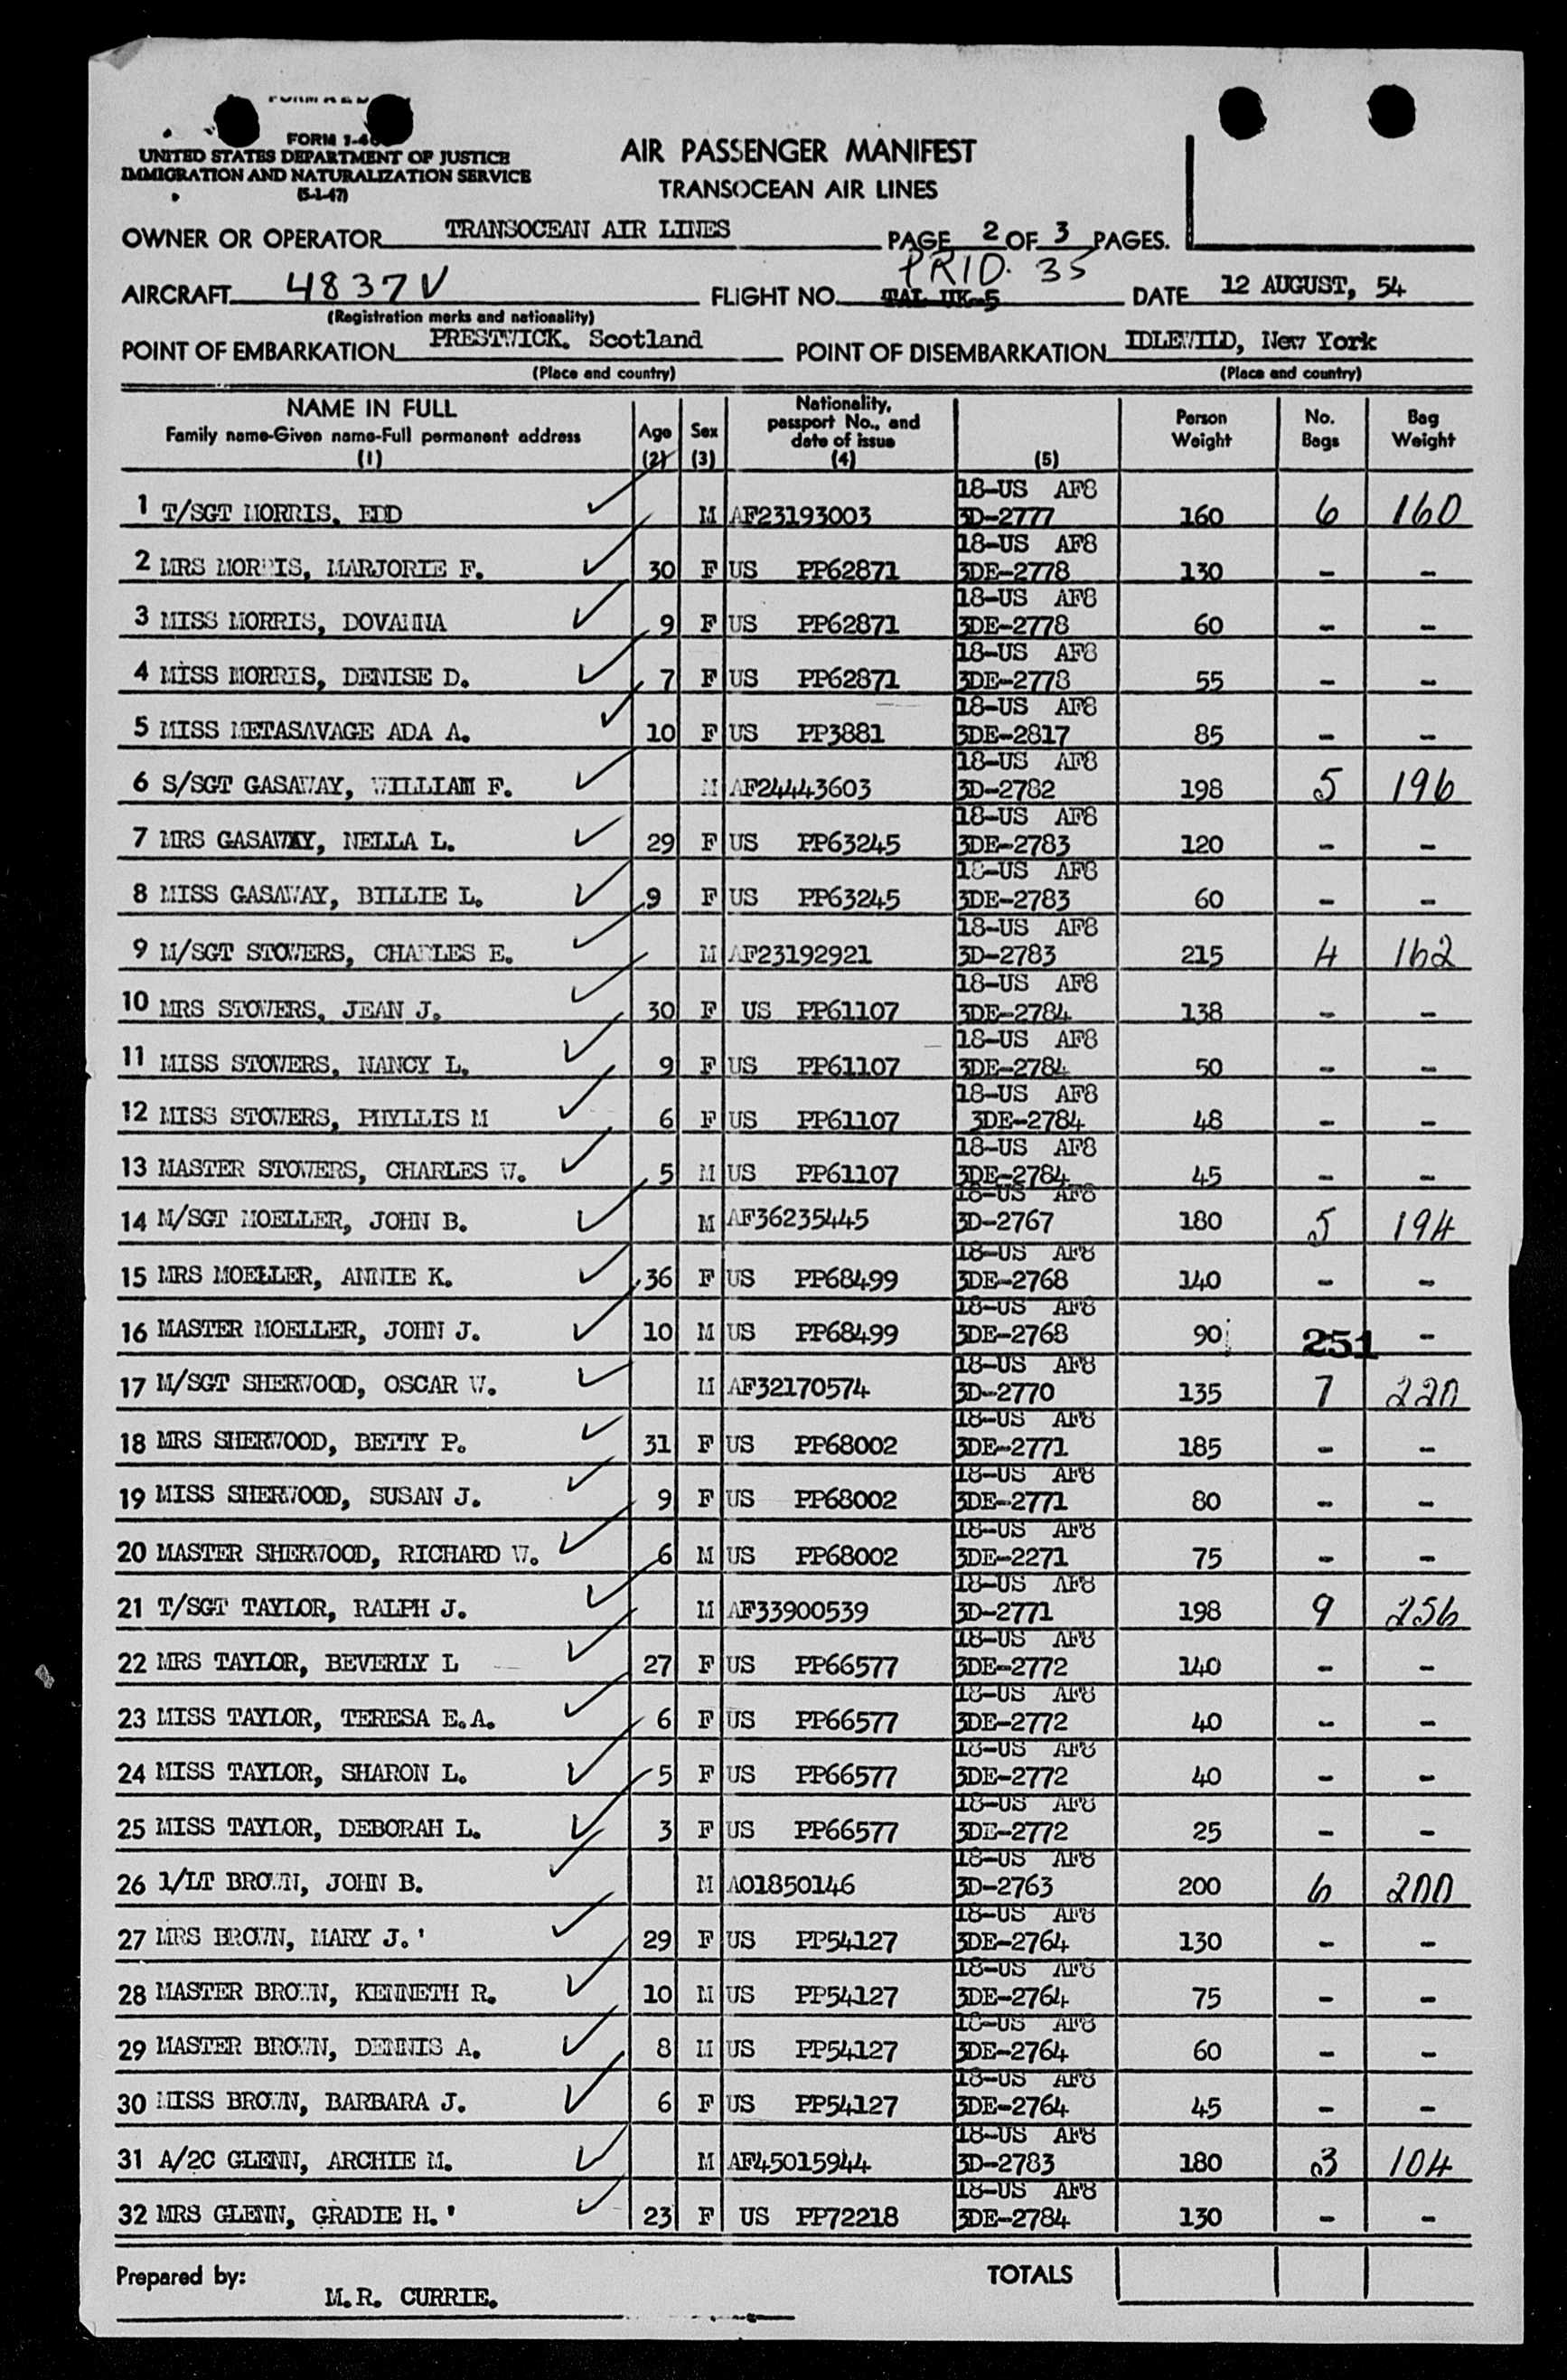 FORM 1-4
UNITED STATES DEPARTMENT OF JUSTICE
IMMIGRATION AND NATURALIZATION SERVICE
(5-1-47)
AIR PASSENGER MANIFEST
TRANSOCEAN AIR LINES
OWNER OR OPERATOR TRANSOCEAN AIR LINES PAGE 2 OF 3 PAGES.
PRID. 35
AIRCRAFT 4837V FLIGHT NO. TAL UK-5 DATE 12 AUGUST, 54
(Registration marks and nationality)
POINT OF EMBARKATION PRESTWICK. Scotland POINT OF DISEMBARKATION IDLEWILD, New York
(Place and country) (Place and country)
NAME IN FULL Family name-Given name-Full permanent address (1) Age (2) Sex (3) Nationality, passport No., and date of issue (4) (5) Person Weight No. Bags Bag Weight
18-US AF8
1 T/SGT MORRIS, EDD M AF23193003 3D-2777 160 6 160
18-US AF8
2 MRS MORRIS, MARJORIE F. 30 F US PP62871 3DE-2778 130 - -
18-US AF8
3 MISS MORRIS, DOVANNA 9 F US PP62871 3DE-2778 60 - -
18-US AF8
4 MISS MORRIS, DENISE D. 7 F US PP62871 3DE-2778 55 - -
18-US AF8
5 MISS METASAVAGE ADA A. 10 F US PP3881 3DE-2817 85 - -
18-US AF8
6 S/SGT GASAWAY, WILLIAM F. M AF24443603 3D-2782 198 5 196
18-US AF8
7 MRS GASAWAY, NELLA L. 29 F US PP63245 3DE-2783 120 - -
18-US AF8
8 MISS GASAWAY, BILLIE L. 9 F US PP63245 3DE-2783 60 - -
18-US AF8
9 M/SGT STOWERS, CHARLES E. M AF23192921 3D-2783 215 4 162
18-US AF8
10 MRS STOWERS, JEAN J. 30 F US PP61107 3DE-2784 138 - -
18-US AF8
11 MISS STOWERS, NANCY L. 9 F US PP61107 3DE-2784 50 - -
18-US AF8
12 MISS STOWERS, PHYLLIS M 6 F US PP61107 3DE-2784 48 - -
18-US AF8
13 MASTER STOWERS, CHARLES W. 5 M US PP61107 3DE-2784 45 - -
18-US AF8
14 M/SGT MOELLER, JOHN B. M AF36235445 3D-2767 180 5 194
18-US AF8
15 MRS MOELLER, ANNIE K. 36 F US PP68499 3DE-2768 140 - -
18-US AF8
16 MASTER MOELLER, JOHN J. 10 M US PP68499 3DE-2768 90 251 -
18-US AF8
17 M/SGT SHERWOOD, OSCAR W. M AF32170574 3D-2770 135 7 220
18-US AF8
18 MRS SHERWOOD, BETTY P. 31 F US PP68002 3DE-2771 185 - -
18-US AF8
19 MISS SHERWOOD, SUSAN J. 9 F US PP68002 3DE-2771 80 - -
18-US AF8
20 MASTER SHERWOOD, RICHARD W. 6 M US PP68002 3DE-2271 75 - -
18-US AF8
21 T/SGT TAYLOR, RALPH J. M AF33900539 3D-2771 198 9 256
18-US AF8
22 MRS TAYLOR, BEVERLY L 27 F US PP66577 3DE-2772 140 - -
18-US AF8
23 MISS TAYLOR, TERESA E.A. 6 F US PP66577 3DE-2772 40 - -
18-US AF8
24 MISS TAYLOR, SHARON L. 5 F US PP66577 3DE-2772 40 - -
18-US AF8
25 MISS TAYLOR, DEBORAH L. 3 F US PP66577 3DE-2772 25 - -
18-US AF8
26 1/LT BROWN, JOHN B. M AO1850146 3D-2763 200 6 200
18-US AF8
27 MRS BROWN, MARY J.' 29 F US PP54127 3DE-2764 130 - -
18-US AF8
28 MASTER BROWN, KENNETH R. 10 M US PP54127 3DE-2764 75 - -
18-US AF8
29 MASTER BROWN, DENNIS A. 8 M US PP54127 3DE-2764 60 - -
18-US AF8
30 MISS BROWN, BARBARA J. 6 F US PP54127 3DE-2764 45 - -
18-US AF8
31 A/2C GLENN, ARCHIE M. M AF45015944 3D-2783 180 3 104
18-US AF8
32 MRS GLENN, GRADIE H.' 23 F US PP72218 3DE-2784 130 - -
Prepared by: M.R. CURRIE. TOTALS